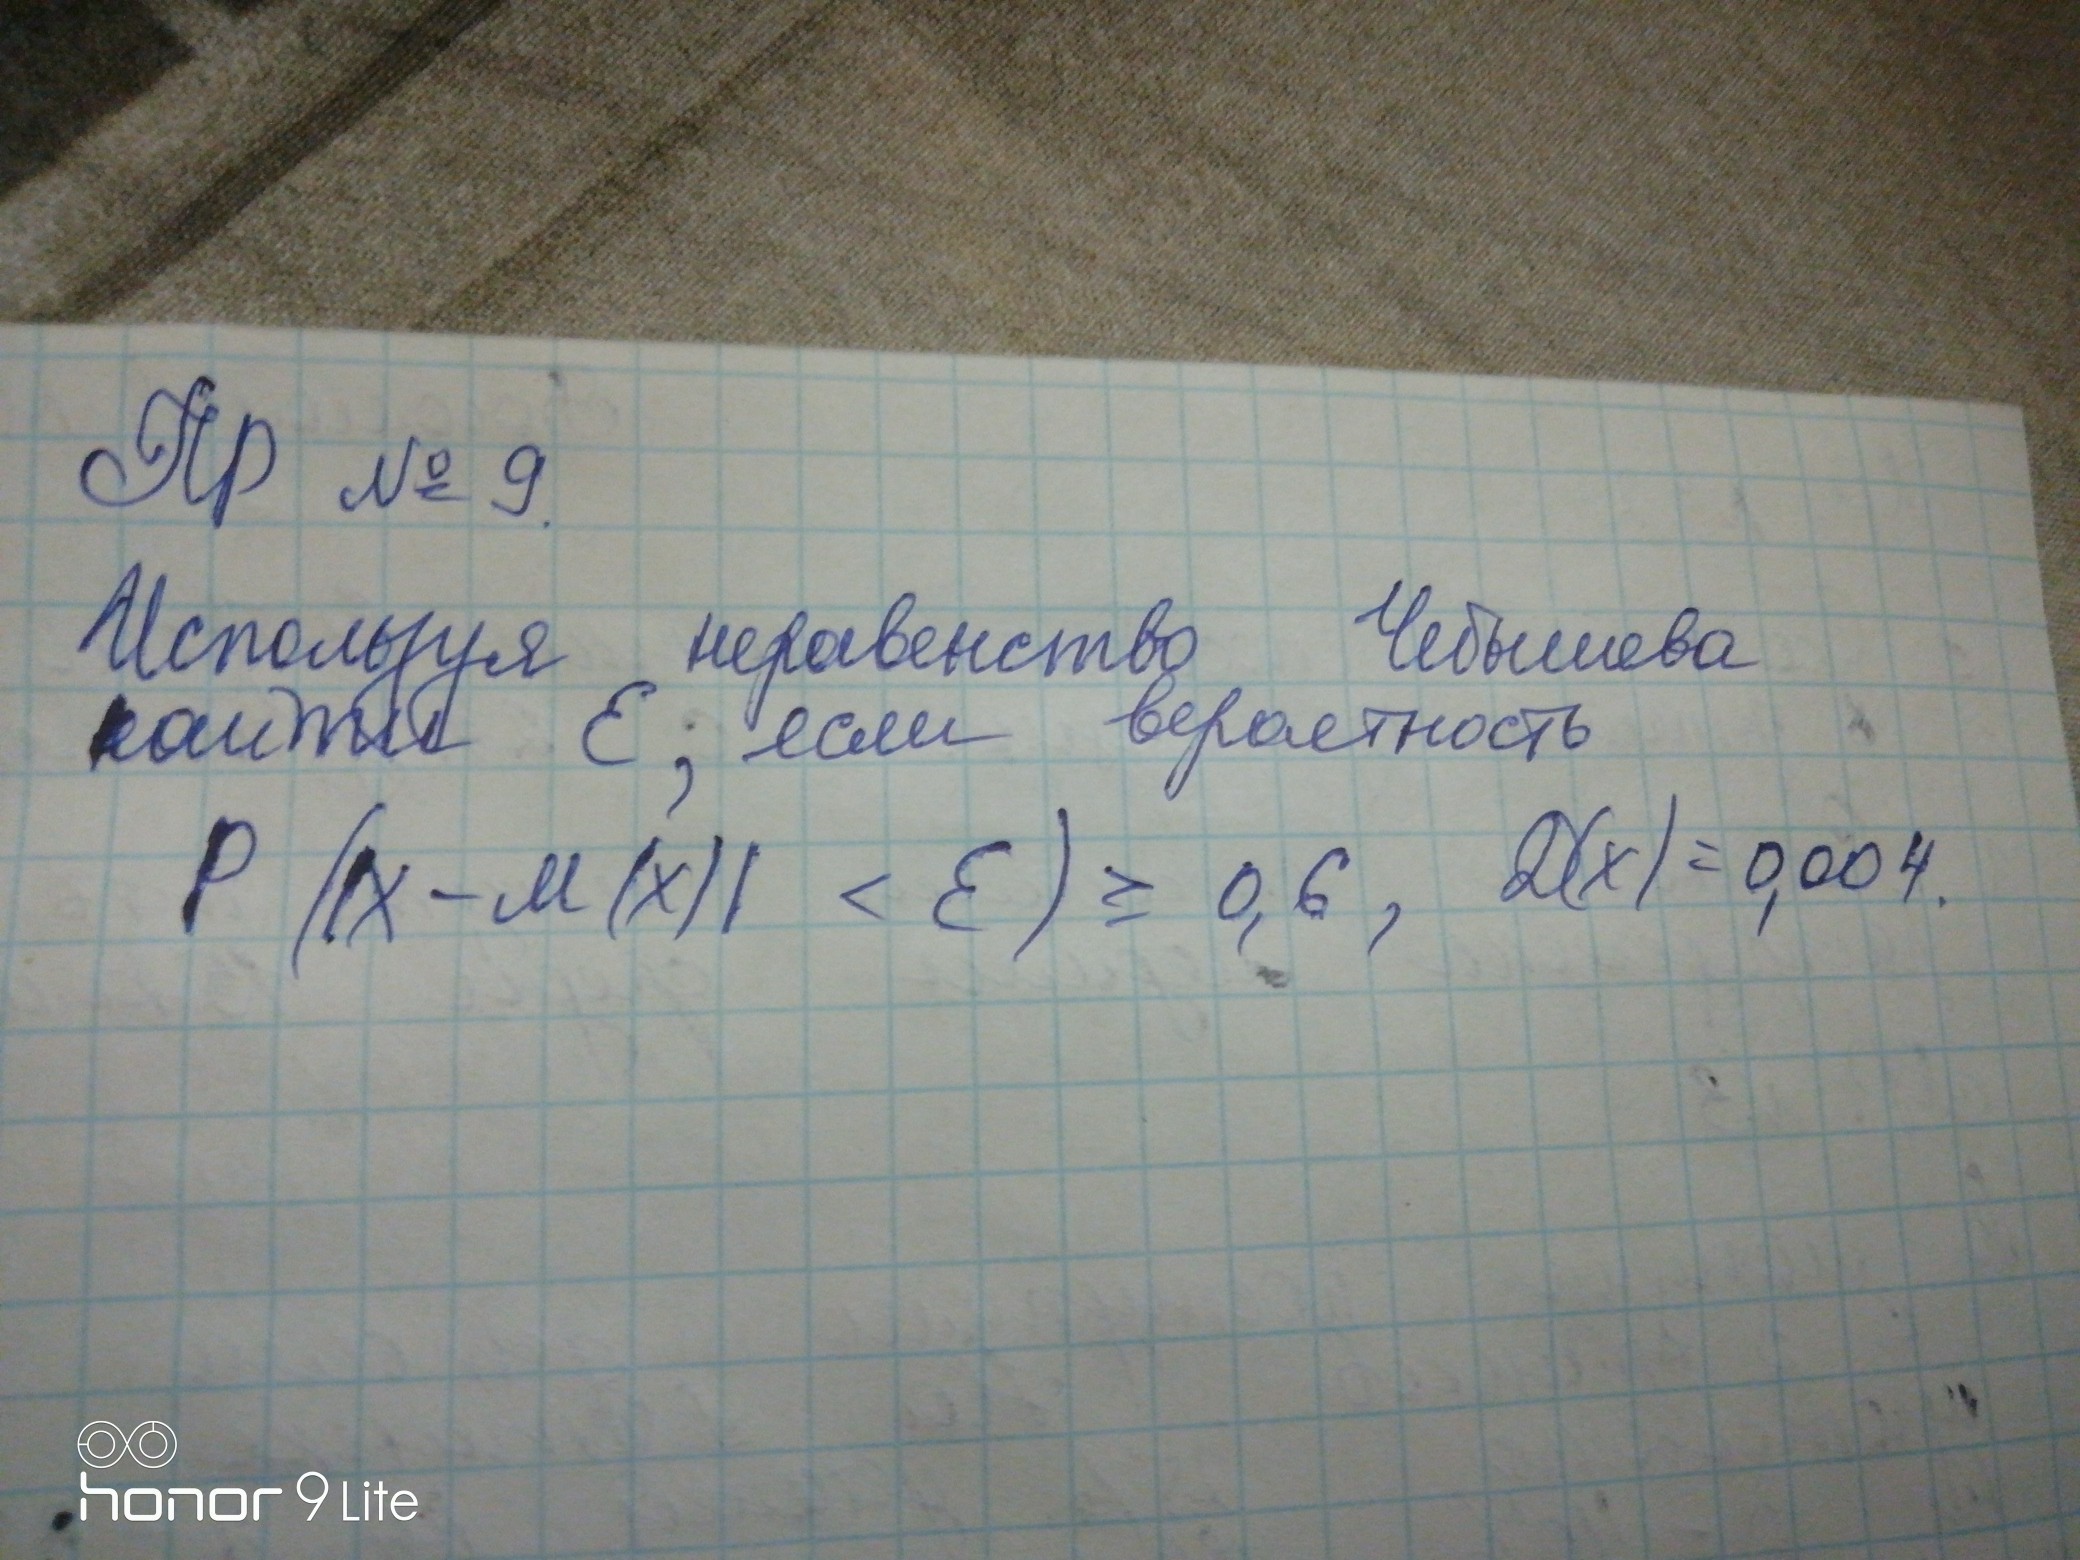 Пр № 9.
Используя неравенство Чебышева
найти ε, если вероятность
P (|X - M(X)| < ε) ≥ 0,6, D(x) = 0,004.
honor 9 Lite